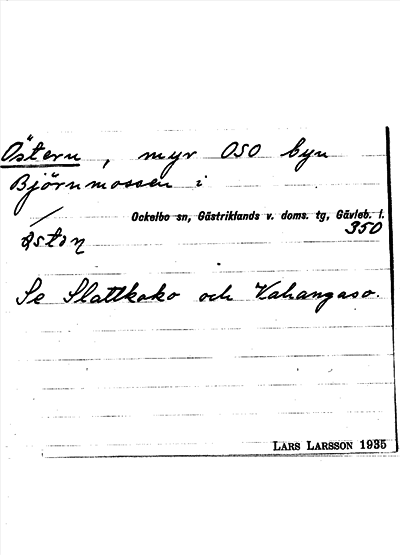 Östern, myr OSO byn
Björnmossen i
Ockelbo sn, Gästriklands v. doms. tg, Gävleb. l.
350
Se Slattkako och Kahangaso.
LARS LARSSON 1935